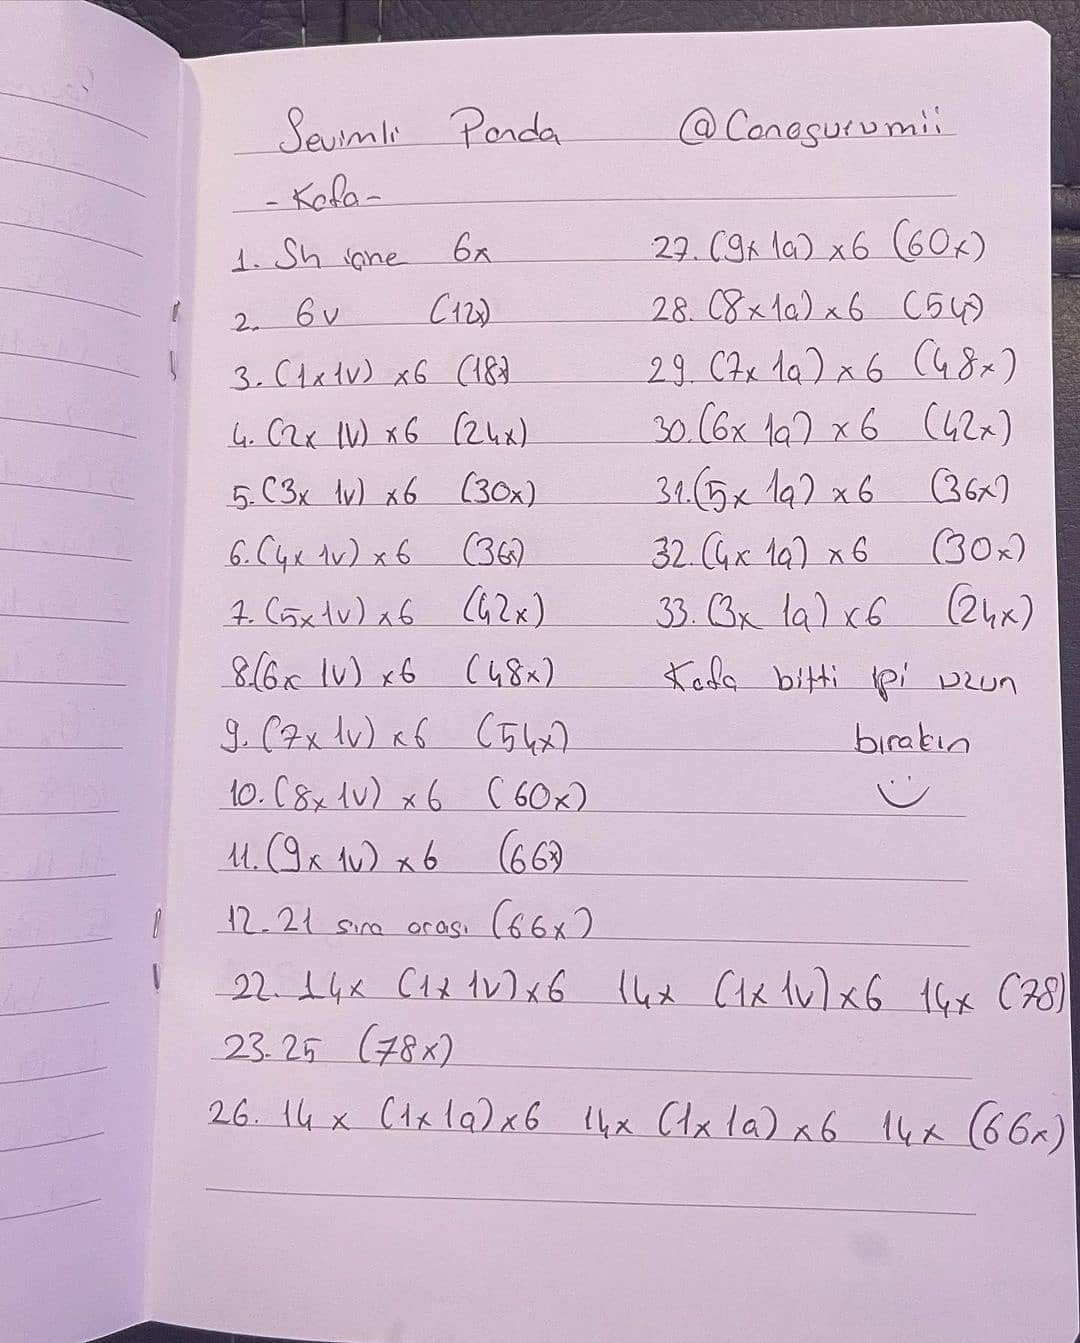 Sevimli Panda @Canagurumii
- Kafa -
1. Sh içine 6x
2. 6v (12x)
3. (1x 1v) x6 (18x)
4. (2x 1v) x6 (24x)
5. (3x 1v) x6 (30x)
6. (4x 1v) x6 (36x)
7. (5x 1v) x6 (42x)
8. (6x 1v) x6 (48x)
9. (7x 1v) x6 (54x)
10. (8x 1v) x6 (60x)
11. (9x 1v) x6 (66x)
12-21 sıra arası (66x)
22. 14x (1x 1v) x6 14x (1x 1v) x6 14x (78)
23-25 (78x)
26. 14x (1x 1a) x6 14x (1x 1a) x6 14x (66x)
27. (9x 1a) x6 (60x)
28. (8x 1a) x6 (54x)
29. (7x 1a) x6 (48x)
30. (6x 1a) x6 (42x)
31. (5x 1a) x6 (36x)
32. (4x 1a) x6 (30x)
33. (3x 1a) x6 (24x)
Kafa bitti ipi uzun
bırakın